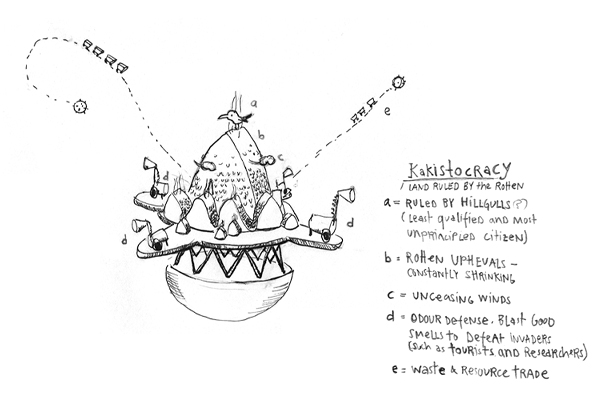 a
b
c
d
d
d
d
e
Kakistocracy
/ LAND RULED BY the Rotten
a = RULED BY HILLGULLS(?)
(Least qualified and most
unprincipled citizen)
b = ROtten UPHEVALS –
CONSTANTLY SHRINKING
c = UNCEASING WINDS
d = ODOUR DEFENSE. Blast GOOD
SMELLS to DEFEAT INVADERS
(such as tOURIStS and ReseaRcheRS)
e = Waste & RESOURCE tRADE